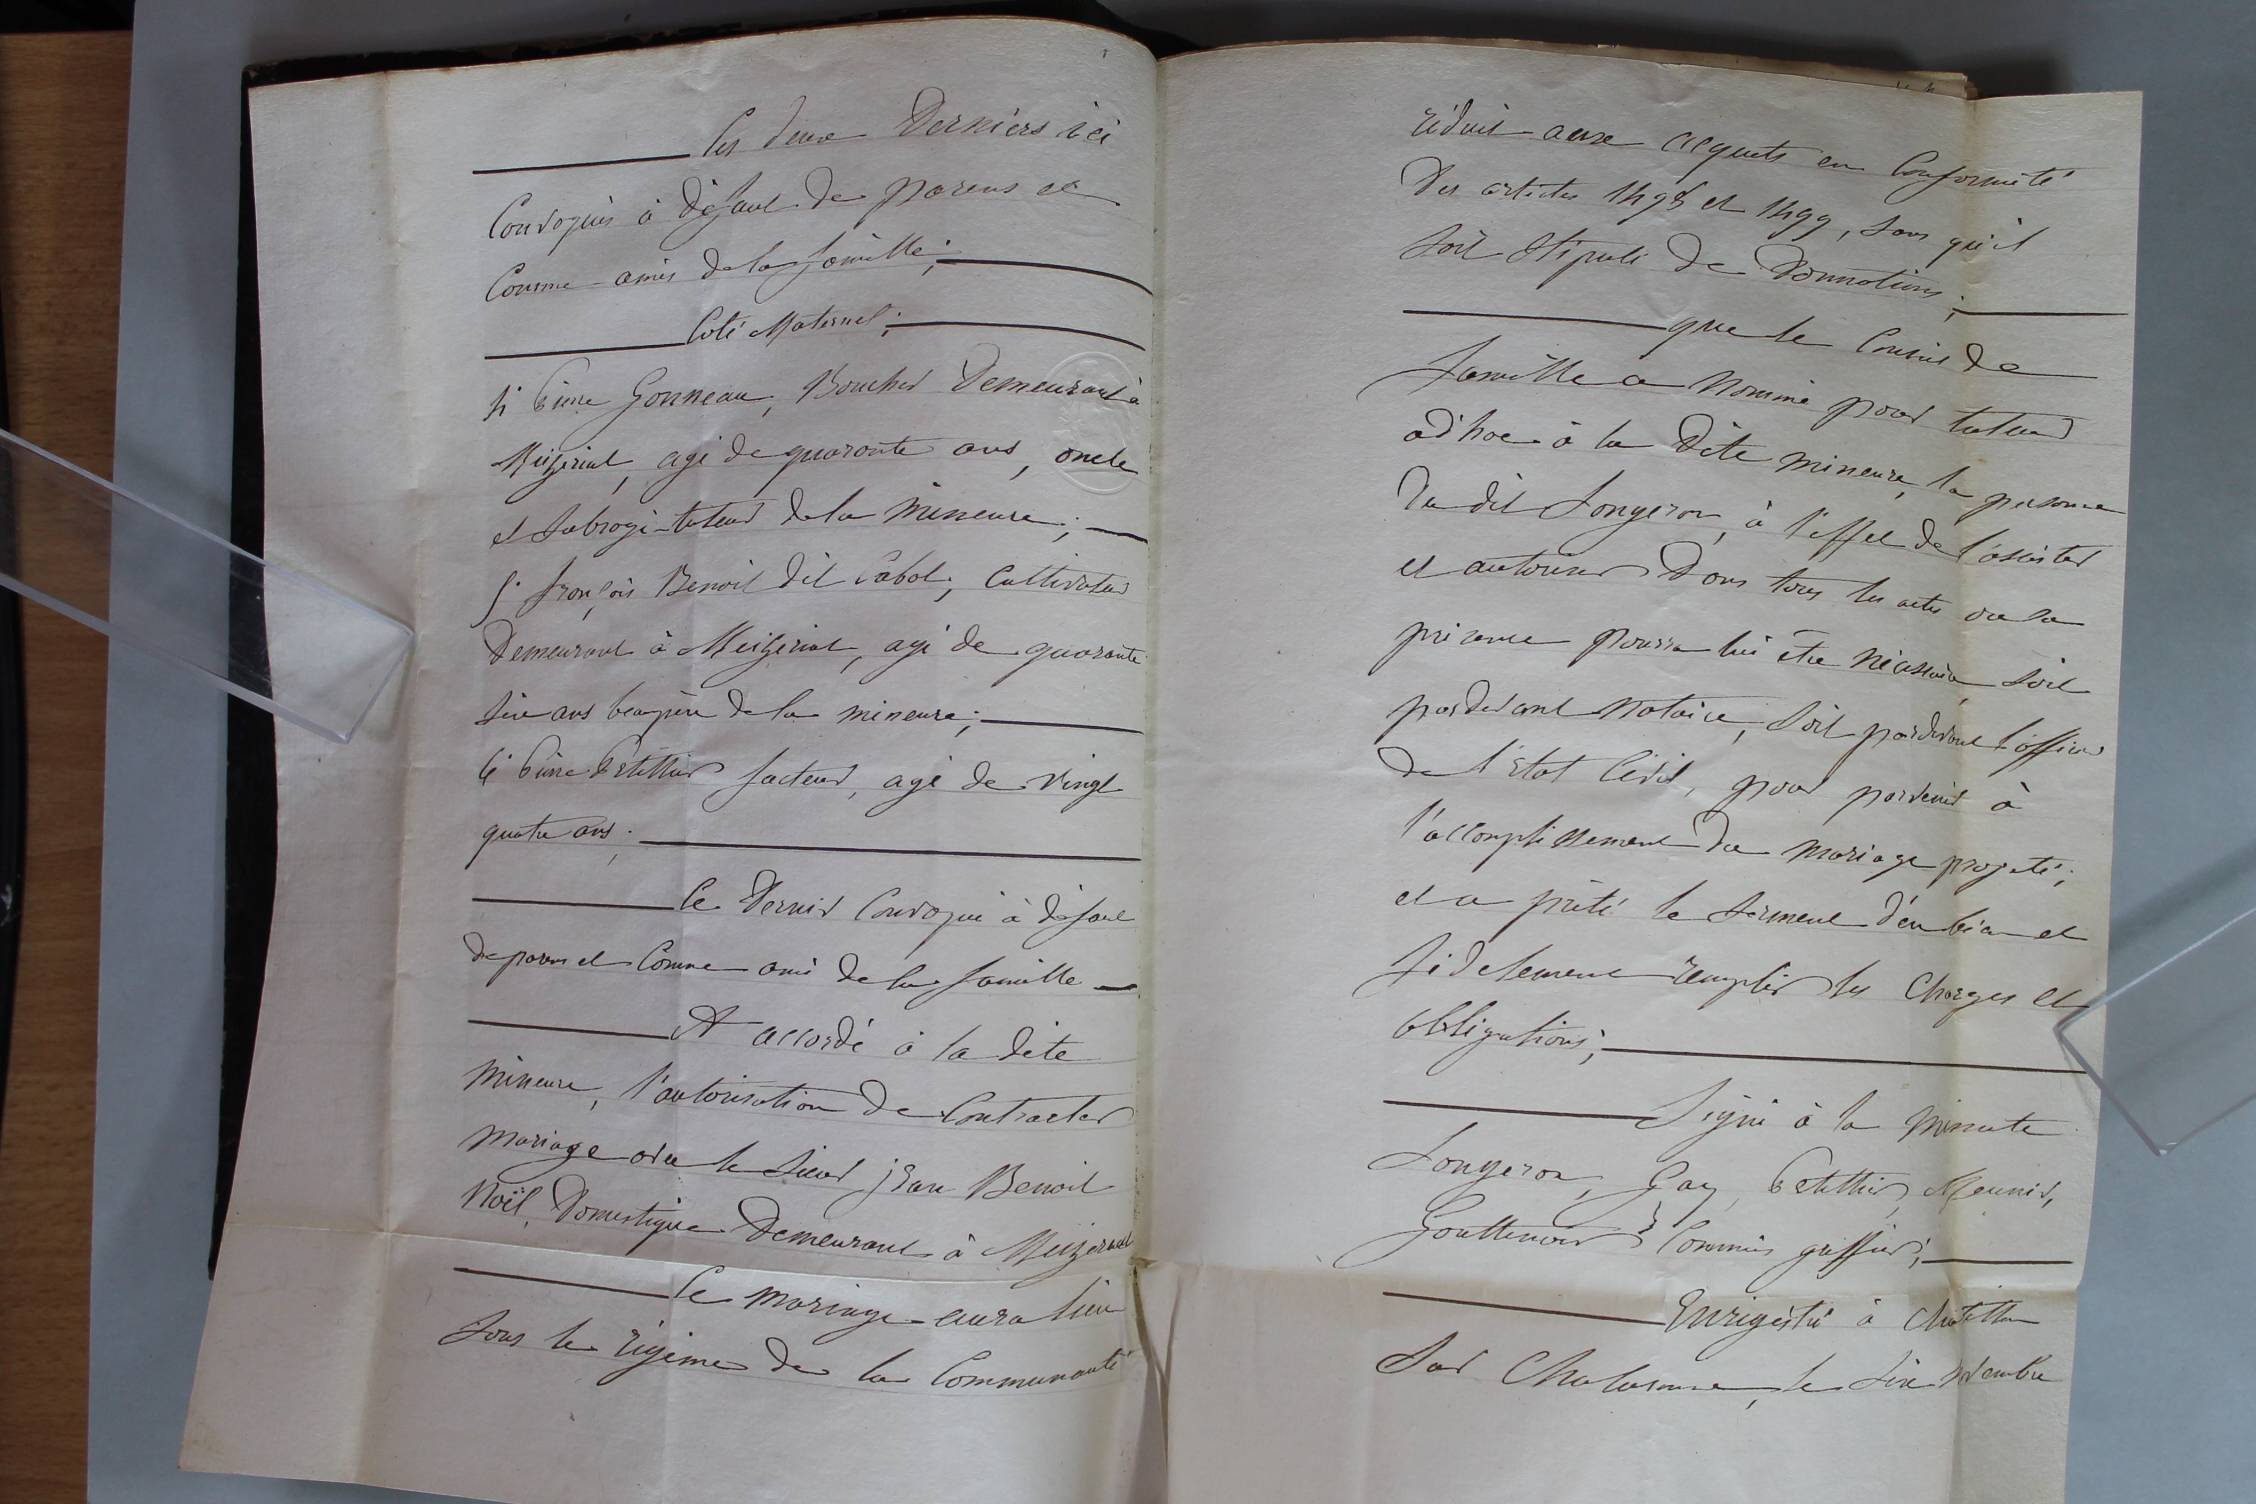 Ces deux Derniers ici
Convoqués à défaut de parens et
Comme amis de la famille;
Coté Maternel;
4° Pierre Gonneau, Boucher Demeurant à
Mézériat, agé de quarante ans, oncle
et Subrogé-tuteur de la Mineure;
5° françois Benoit dit Cabot, Cultivateur
Demeurant à Mézériat, agé de quarante
Six ans beaupère de la mineure;
6° Pierre Petithier facteur, agé de vingt
quatre ans;
Ce Dernier Convoqué à défaut
de parens et Comme ami de la famille
A accordé à la dite
Mineure, l'autorisation de Contracter
Mariage avec le Sieur jean Benoit
Noël, Domestique Demeurant à Mézériat
Ce mariage aura lieu
Sous le régime de la Communauté
réduit aux acquets en Conformité
Des articles 1498 et 1499, Sans qu'il
Soit Stipulé de Donnations;
que le Conseil de
famille a Nommé pour tuteur
ad'hoc à la Dite Mineure, la personne
Du dit Longeron, à l'effet de l'assister
et autoriser Dans tous les actes ou sa
présence pourra lui être Nécessaire, Soit
pardevant Notaire, Soit pardevant l'officier
de l'état Civil, pour parvenir à
l'accomplissement du Mariage projeté;
et a prêté le Serment d'en bien et
fidelement remplir les Charges et
obligations;
Signé à la Minute
Longeron, Gay, Petithier, Meunier,
Gouttenoir Commis greffier;
Enrigéstré à Chatillon
Sur Chalaronne, le Six